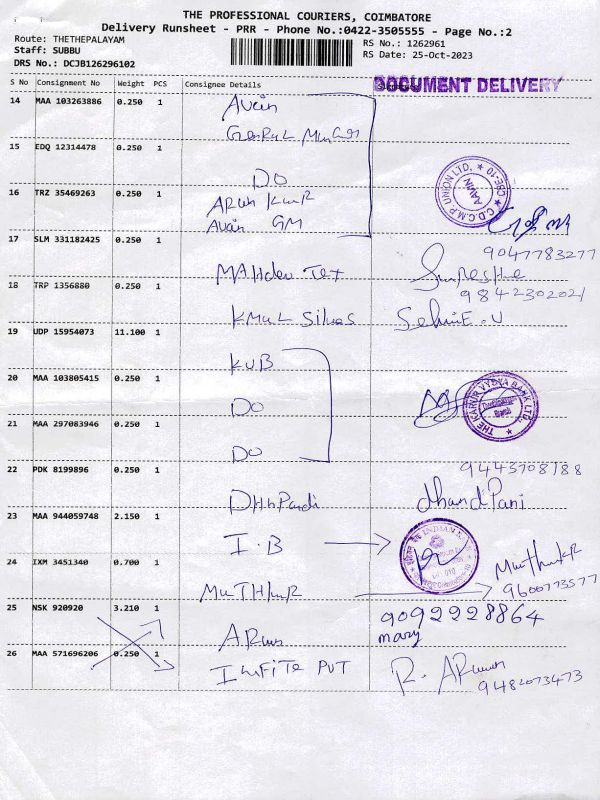 THE PROFESSIONAL COURIERS, COIMBATORE
Delivery Runsheet - PRR - Phone No.:0422-3505555 - Page No.:2
Route: THETHEPALAYAM
Staff: SUBBU
DRS No.: DCJB126296102
RS No.: 1262961
RS Date: 25-Oct-2023
S No Consignment No Weight PCS Consignee Details
DOCUMENT DELIVERY
14 MAA 103263886 0.250 1
Avain
15 EDQ 12314478 0.250 1
DO
16 TRZ 35469263 0.250 1
Arun Kumar
Avain GM
C.D.C.M.P UNION LTD. CBE-10
AAVIN
17 SLM 331182425 0.250 1
Mahdev Tex
9047783277
18 TRP 1356880 0.250 1
Kmal Silvas
9842302021
19 UDP 15954073 11.100 1
KVB
20 MAA 103805415 0.250 1
DO
THE KARUR VYSYA BANK LTD.
21 MAA 297083946 0.250 1
DO
22 PDK 8199896 0.250 1
9443708188
DhnPandi
dhandPani
23 MAA 944059748 2.150 1
I.B
INDIAN
24 IXM 3451340 0.700 1
9600773577
25 NSK 920920 3.210 1
9092228864
mary
26 MAA 571696206 0.250 1
PVT
R.